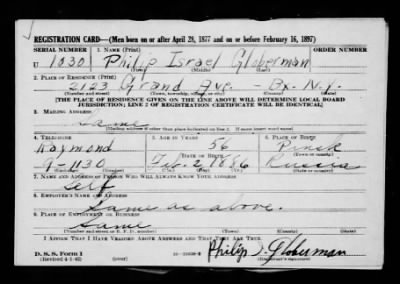 REGISTRATION CARD—(Men born on or after April 28, 1877 and on or before February 16, 1897)
SERIAL NUMBER 1. NAME (Print) ORDER NUMBER
U 1030 Philip Israel Globerman
(First) (Middle) (Last)
2. PLACE OF RESIDENCE (Print)
2123 Grand Ave. - Bx. N.Y.
(Number and street) (Town, township, village, or city) (County) (State)
[THE PLACE OF RESIDENCE GIVEN ON THE LINE ABOVE WILL DETERMINE LOCAL BOARD
JURISDICTION; LINE 2 OF REGISTRATION CERTIFICATE WILL BE IDENTICAL]
3. MAILING ADDRESS
Same
[Mailing address if other than place indicated on line 2. If same insert word same]
4. TELEPHONE 5. AGE IN YEARS 6. PLACE OF BIRTH
Raymond 56 Pinsk
DATE OF BIRTH (Town or county)
9-1130 Feb. 2 1886 Russia
(Exchange) (Number) (Mo.) (Day) (Yr.) (State or country)
7. NAME AND ADDRESS OF PERSON WHO WILL ALWAYS KNOW YOUR ADDRESS
Self
8. EMPLOYER'S NAME AND ADDRESS
Same as above.
9. PLACE OF EMPLOYMENT OR BUSINESS
Same
(Number and street or R. F. D. number) (Town) (County) (State)
I AFFIRM THAT I HAVE VERIFIED ABOVE ANSWERS AND THAT THEY ARE TRUE.
D. S. S. Form 1
(Revised 4-1-42) Philip I. Globerman
(Registrant's signature)